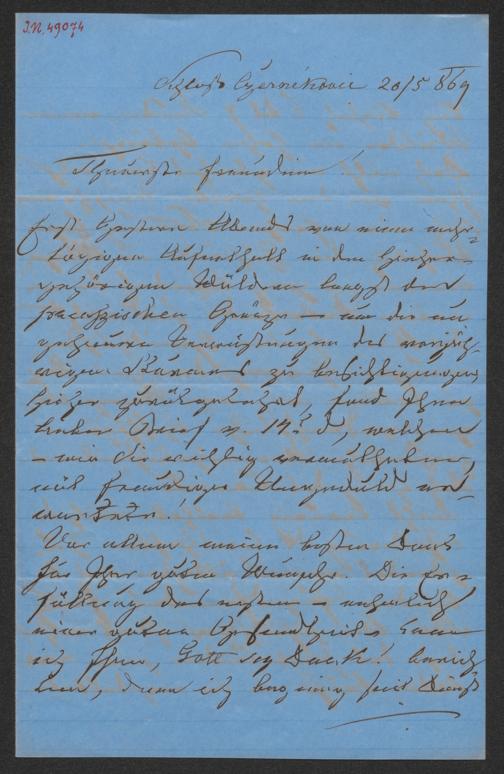 I.N. 49074
Schloß Czernikovic 20/5 869
Theuerste Freundin!
Erst gestern Abends von einem mehr-
tägigen Aufenthalt in den hieher-
gehörigen Wäldern längst der
preussischen Gränze – um die un
geheueren Verwüstungen des vorjäh-
rigen Orkans zu besichtigen
hieher zurückgekehrt, fand Ihren
lieben Brief v. 17. d, welchen
– wie Sie richtig vermutheten,
mit freudiger Ungeduld er-
wartete!
Vor allem meinen besten Dank
für Ihre guten Wünsche. Die Er-
füllung des ersten – nehmlich
einer guten Gesundheit kann
ich Ihnen, Gott sey Dank! berich
ten, denn ich seit